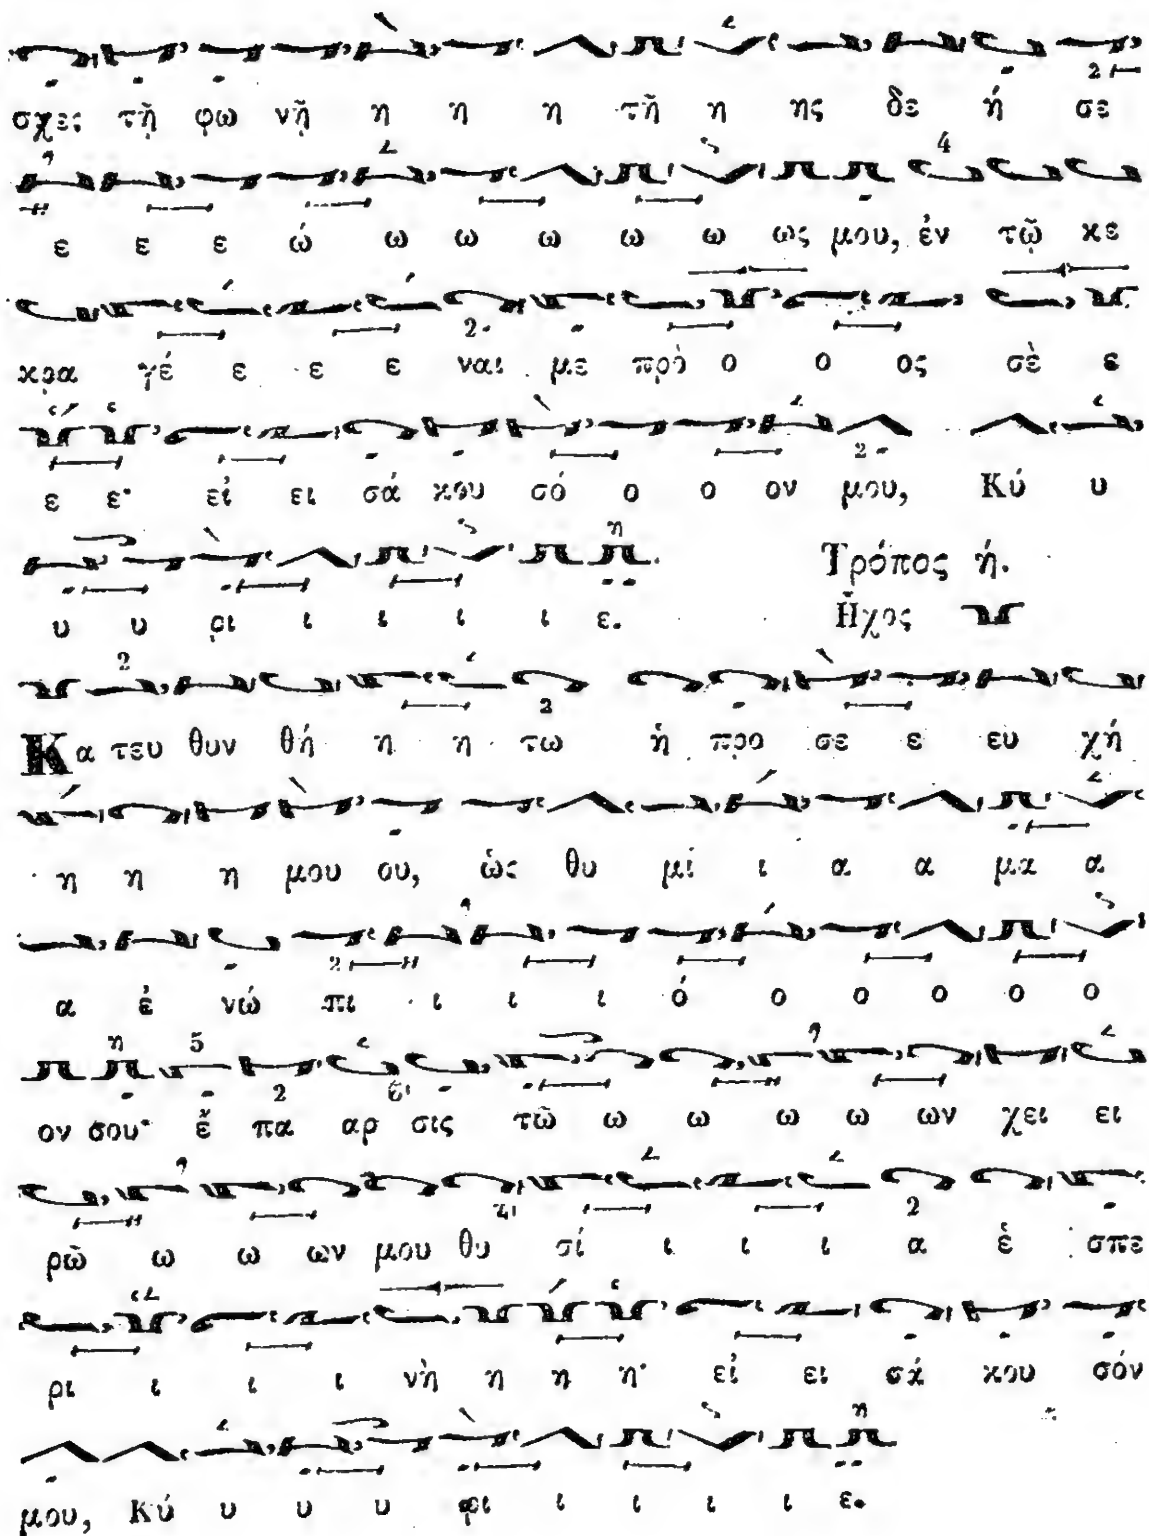 σχες τῇ φω νῇ η η η τῆ η ης δε ή σε
ε ε ε ώ ω ω ω ω ω ως μου, ἐν τῷ κε
κρα γέ ε ε ε ναι με πρὸ ο ο ος σὲ ε
ε ε· εἰ ει σά κου σό ο ο ον μου, Κύ υ
υ υ ρι ι ι ι ι ε.
Τρόπος ή.
Ἦχος
Κα τευ θυν θή η η τω ἡ προ σε ε ευ χή
η η η μου ου, ὡς θυ μί ι α α μα α
α ἐ νώ πι ι ι ι ό ο ο ο ο ο
ον σου· ἔ πα αρ σις τῶ ω ω ω ω ων χει ει
ρῶ ω ω ων μου θυ σί ι ι ι α ἑ σπε
ρι ι ι ι νὴ η η η· εἰ ει σά κου σόν
μου, Κύ υ υ υ ρι ι ι ι ι ε.